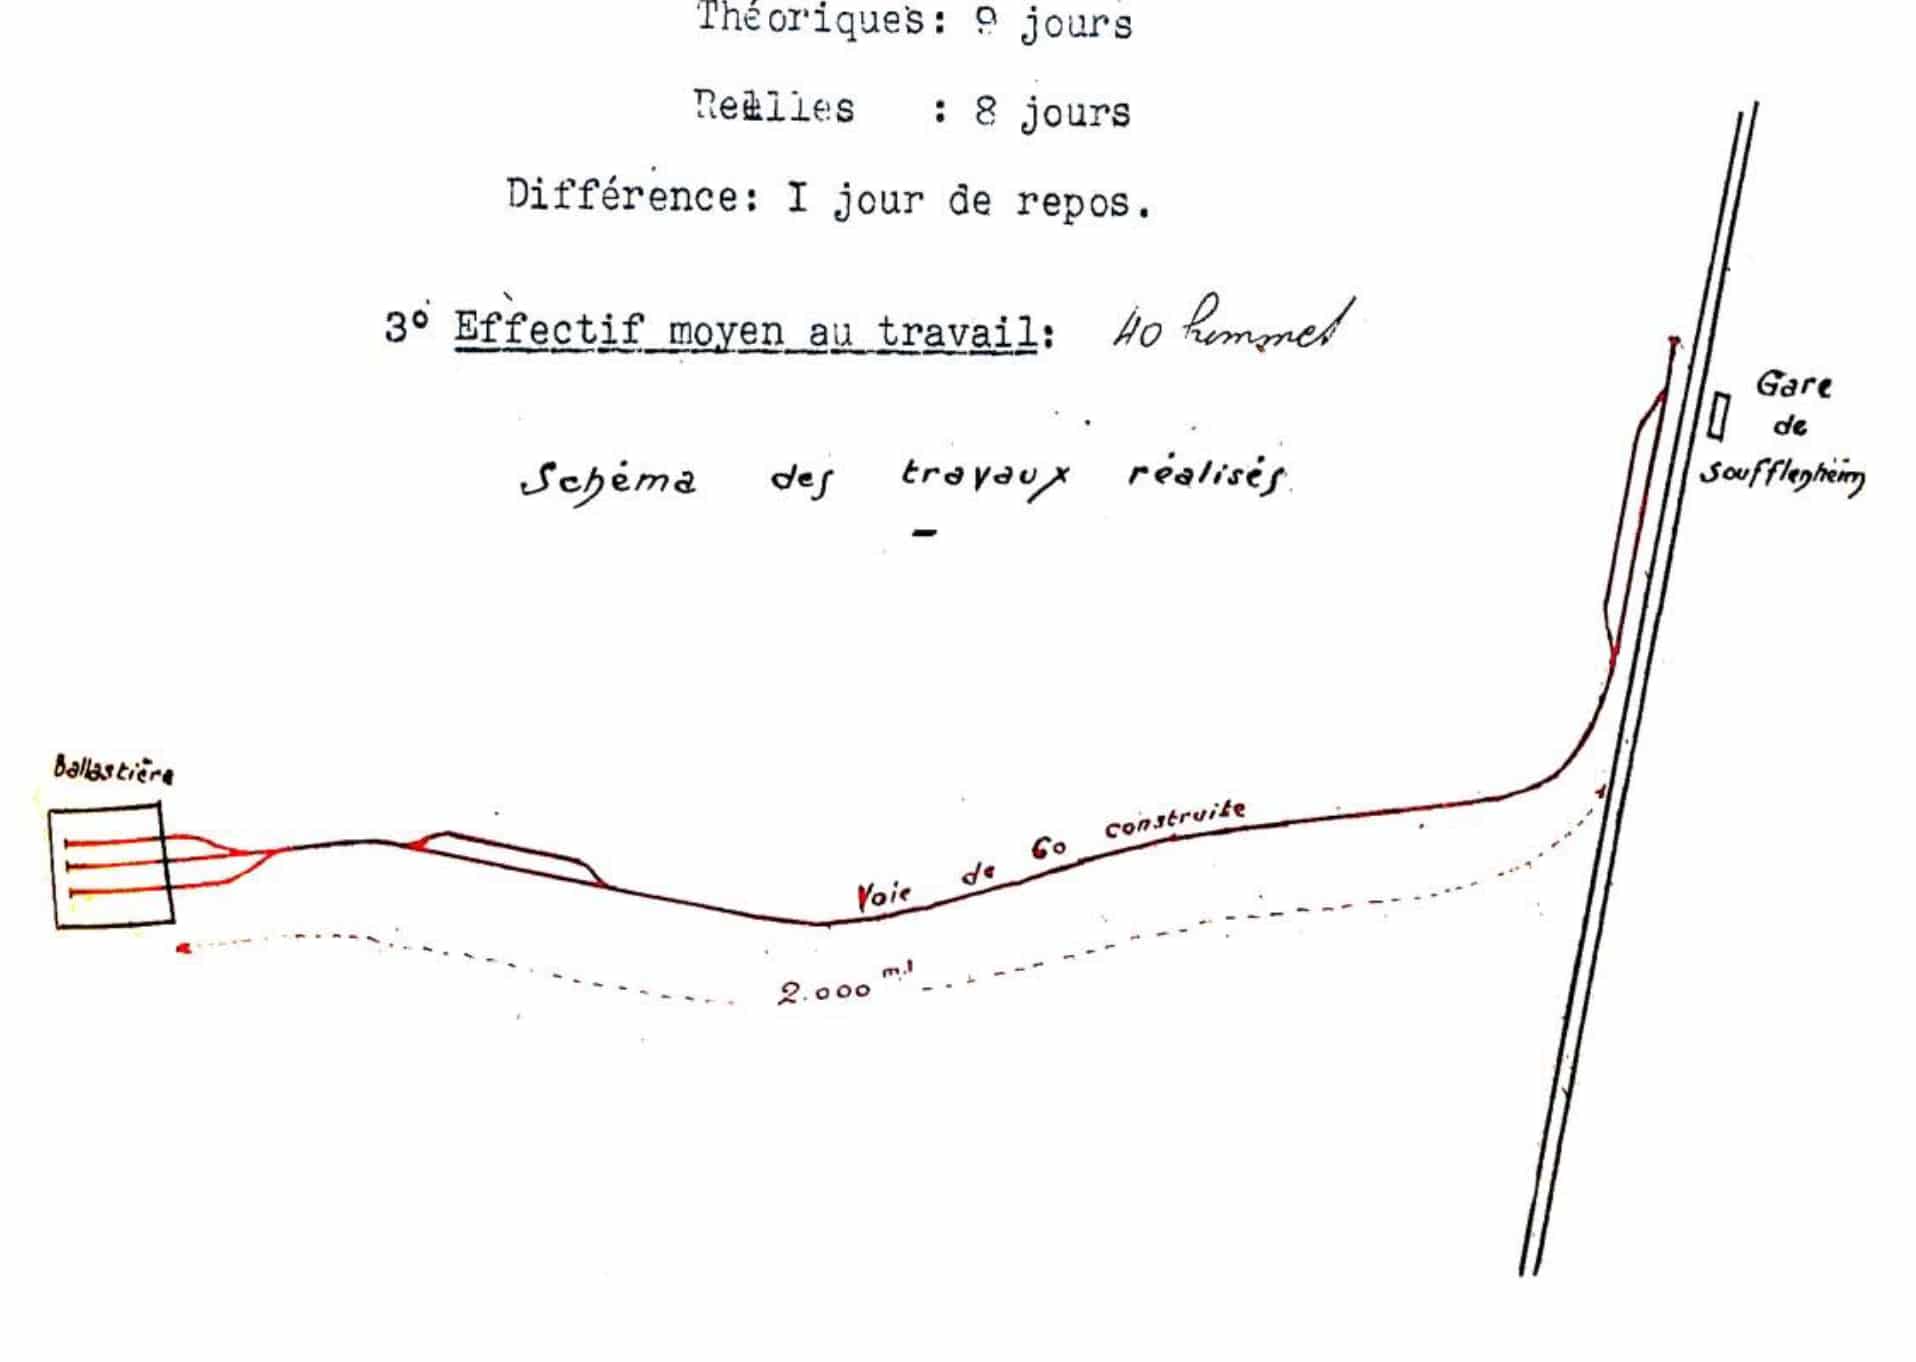 Théoriques: 9 jours
Reelles : 8 jours
Différence: I jour de repos.
3° Effectif moyen au travail: 40 hommes
Schéma des travaux réalisés.
Gare
de
Soufflenheim
Ballastière
Voie de 60 construite
2.000 m.l